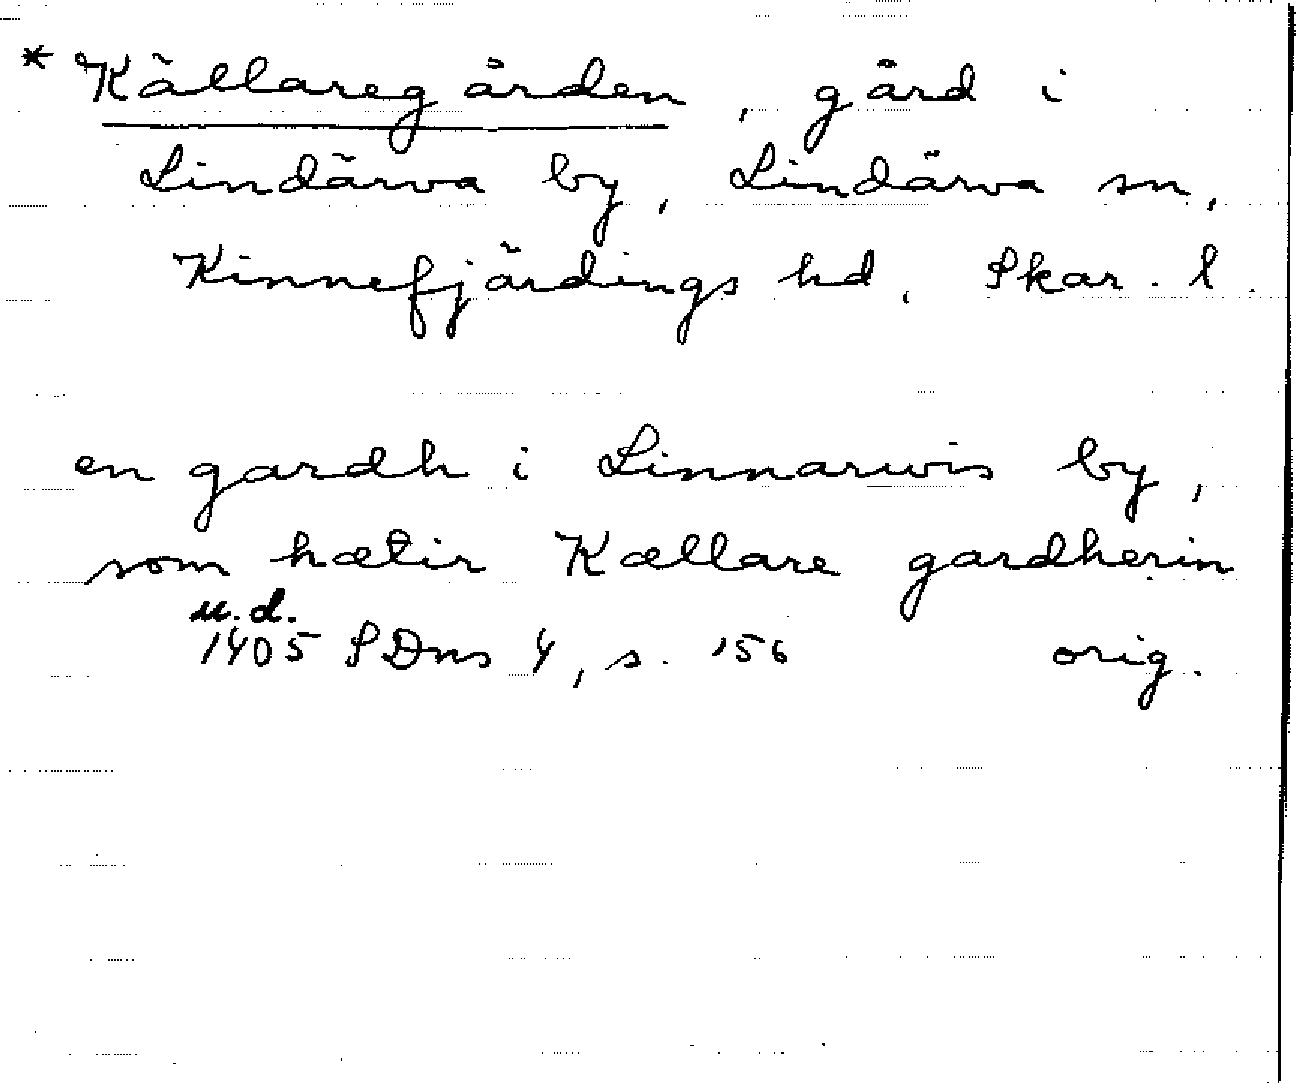 * Källaregården, gård i
Lindärva by, Lindärva sn,
Kinnefjärdings hd, Skar. l.
en gardh i Linnarwis by,
som hætir Kællare gardherin
u.d.
1405 SDns 4, s. 156 orig.